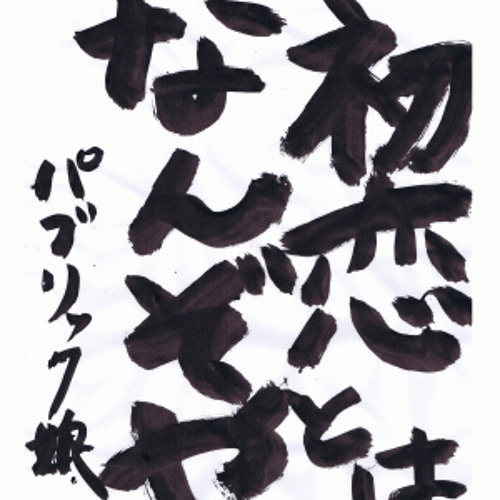 初恋とは
なんぞや
パブリック娘。